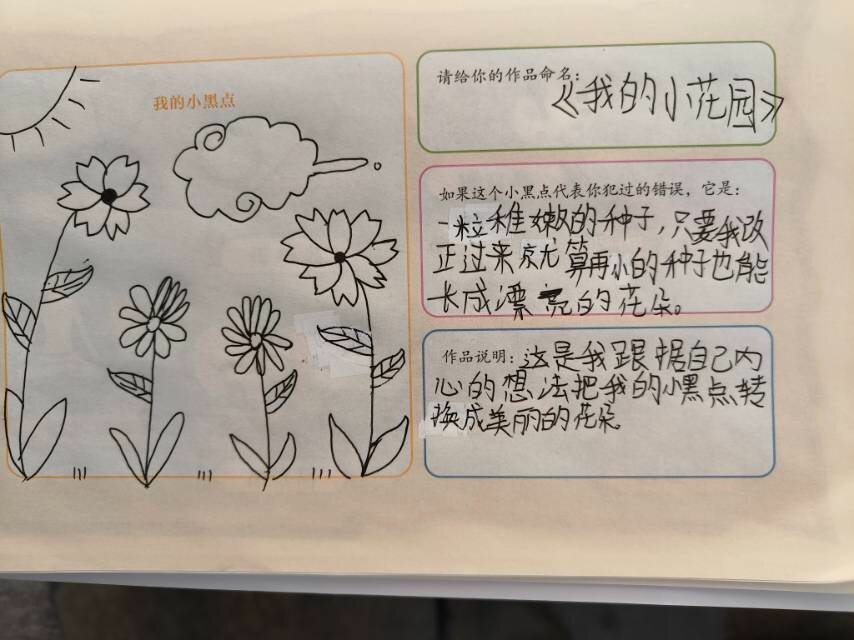 我的小黑点
请给你的作品命名：
《我的小花园》
如果这个小黑点代表你犯过的错误，它是：
一粒稚嫩的种子，只要我改
正过来就算再小的种子也能
长成漂亮的花朵。
作品说明：这是我跟据自己内
心的想法把我的小黑点转
换成美丽的花朵。